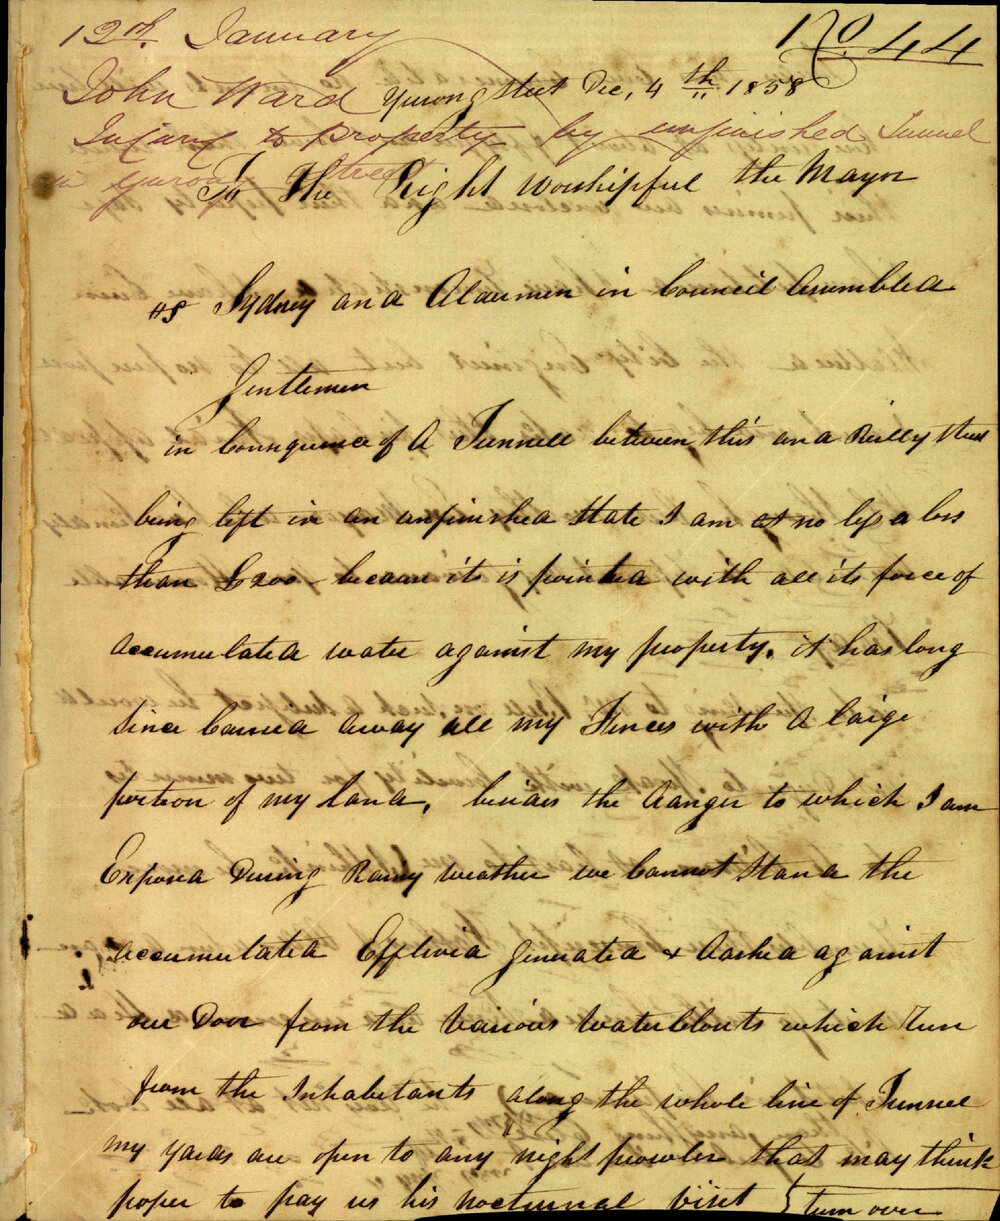 12th January
No. 44
John Ward
Yurong Street Dec, 4th 1858
Injury to property by unfinished Tunnel
in Yurong Street
To The Right Worshipful the Mayor
of Sydney and Aldermen in Council Assembled
Gentlemen
in Consequence of A Tunnell between this and Reilly street
being left in an unfinished state I am at no less a loss
than £200 - because its is pointed with all its force of
accumulated water against my property. it has long
since Carried away all my Fences with A large
portion of my land, besides the danger to which I am
Exposed During Rainy weather we Cannot Stand the
accumulated Efflivia generated & dashed against
our Door from the Various Waterblouts which Run
from the Inhabetants along the whole line of Tunnel
my yards are open to any night prowler that may think
poper to pay us his nocturnal visit { turn over